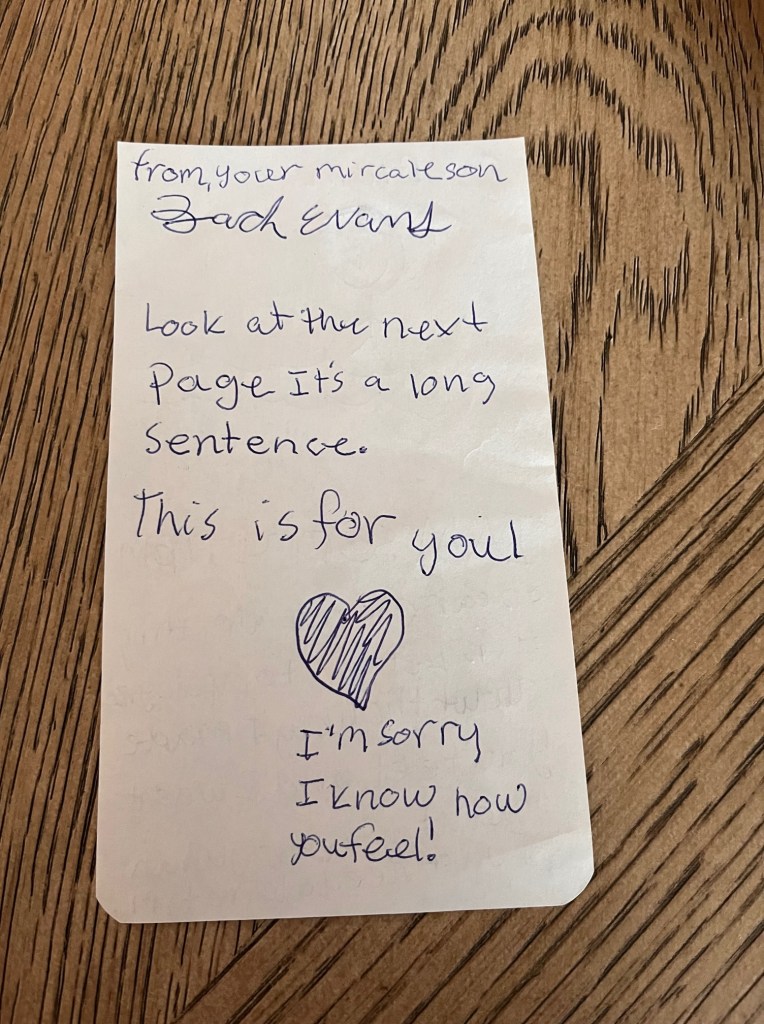 from, your mircale son
Zach Evans
Look at the next
Page It's a long
Sentence.
This is for you!
I'm sorry
I know how
you feel!